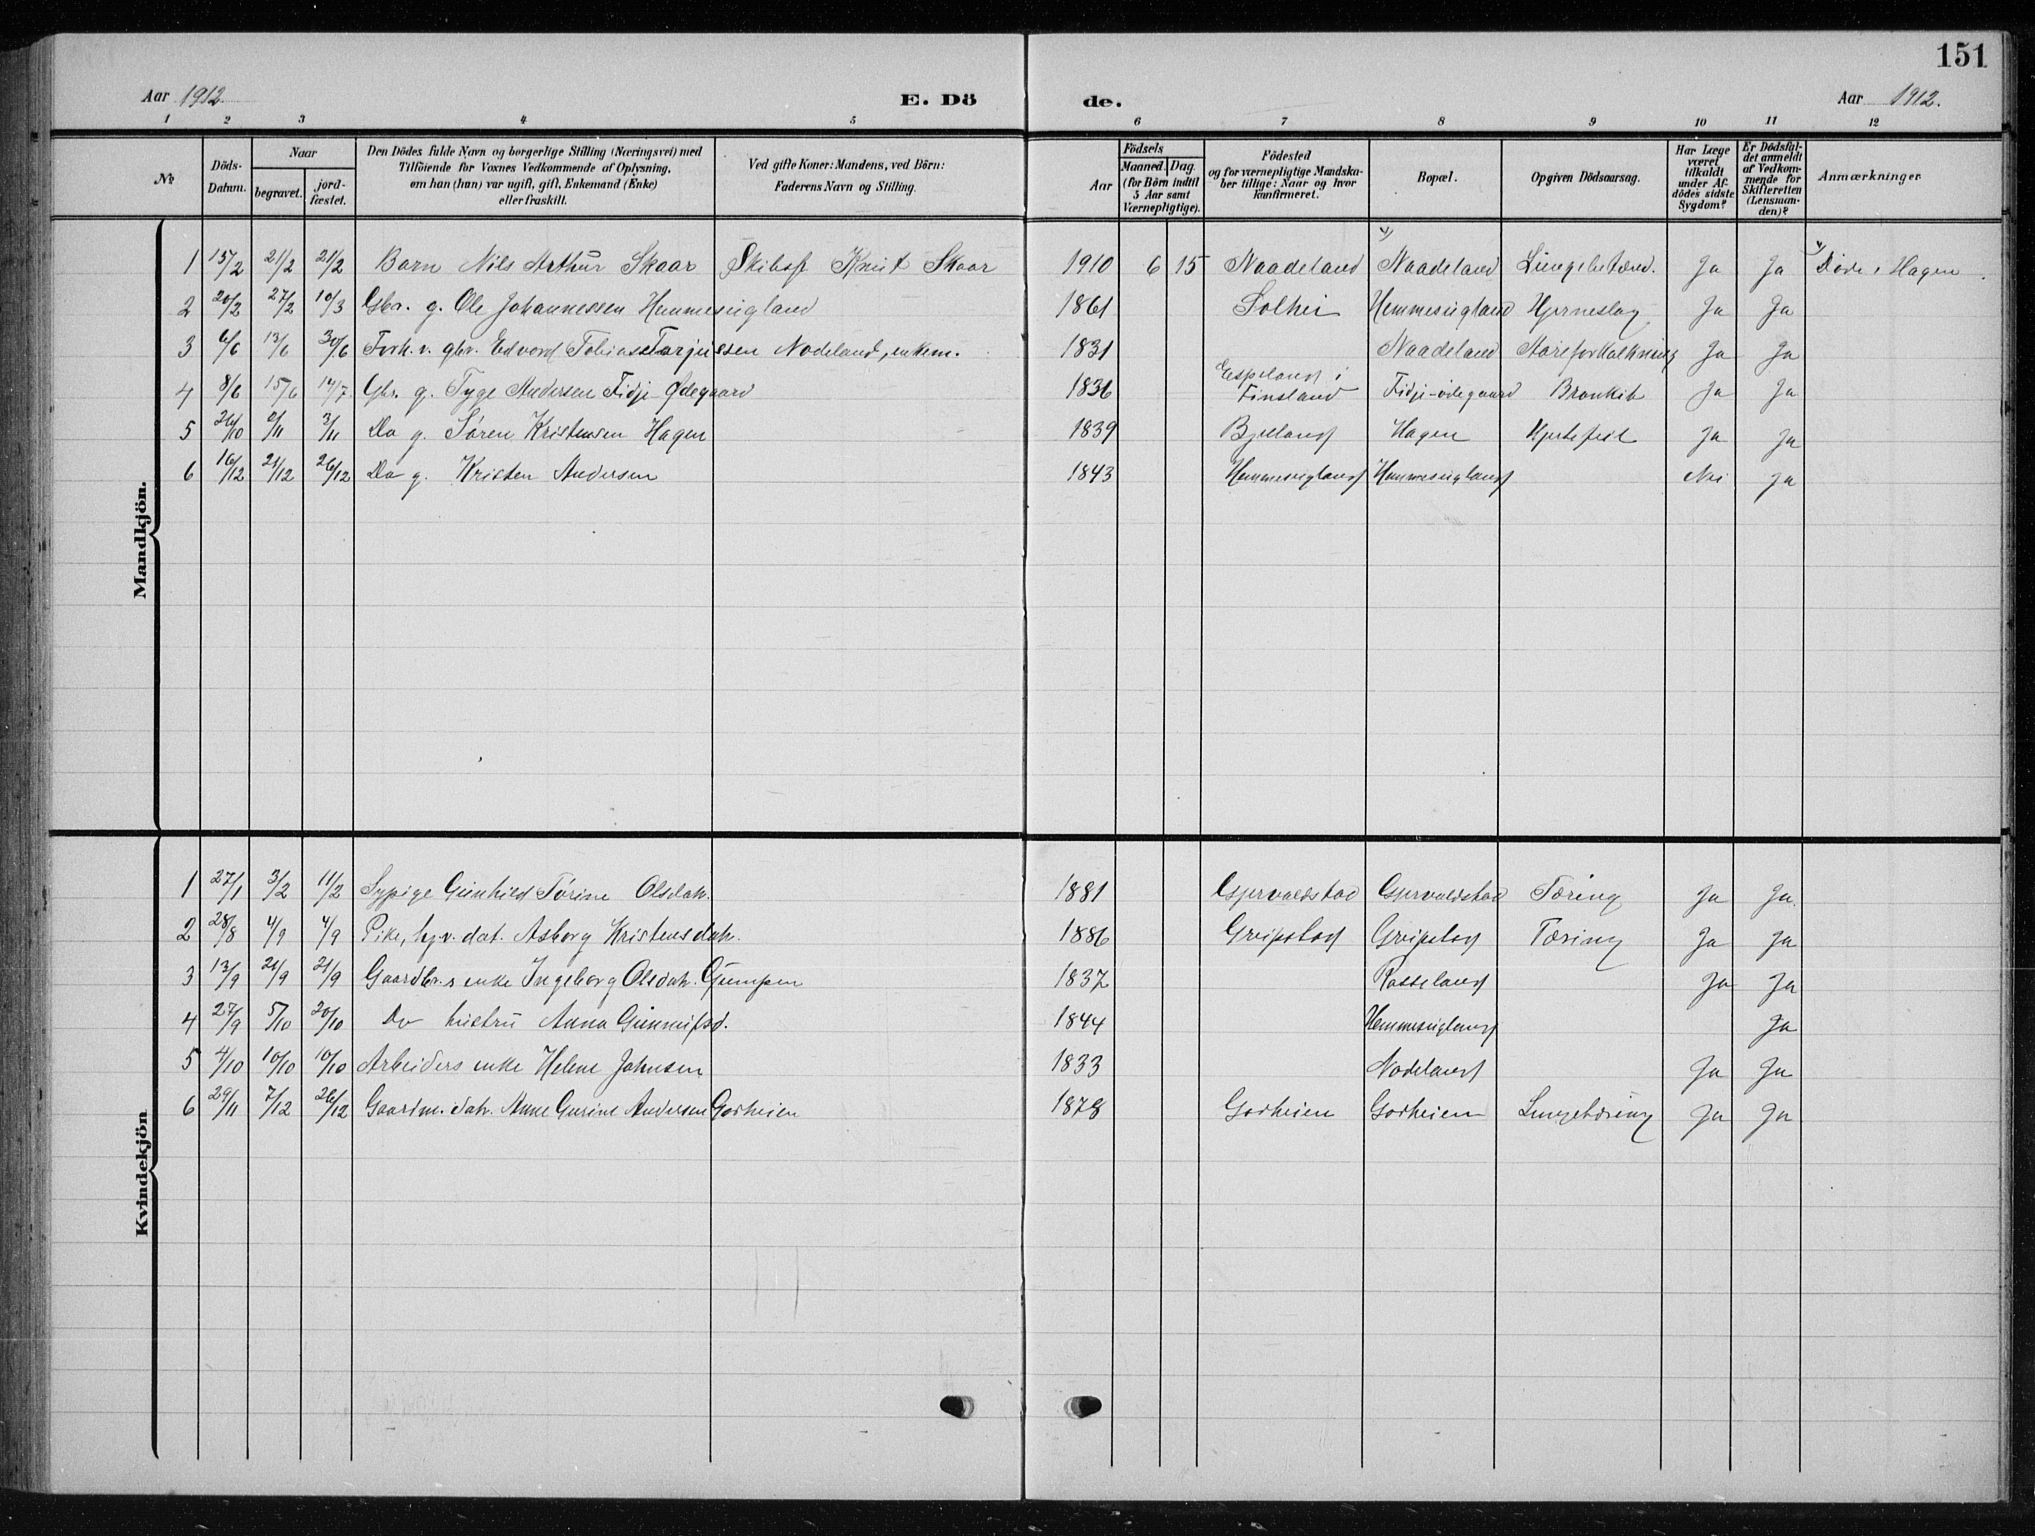 151
Aar 1912. E. Dö de. Aar 1912.
1 2 3 4 5 6 7 8 9 10 11 12
№ Döds-Datum. Naar begravet. jord-fæstet. Den Dödes fulde Navn og borgerlige Stilling (Næringsvei) med Tilföiende for Voxnes Vedkommende af Oplysning, om han (hun) var ugift, gift, Enkemand (Enke) eller fraskilt. Ved gifte Koner: Mandens, ved Börn: Faderens Navn og Stilling. Aar Födsels Maaned. Dag. (for Börn indtil 5 Aar samt Værnepligtige). Födested og for værnepligtige Mandska-ber tillige: Naar og hvor konfirmeret. Bopæl. Opgiven Dödsaarsag. Har Læge været tilkaldt under Af-dödes sidste Sygdom? Er Dödsfal-det anmeldt af Vedkom-mende for Skifteretten (Lensman-den)? Anmærkninger
Mandkjön.
1 13/2 21/2 21/2 Barn Nils Arthur Skaar Skibsf Knut Skaar 1910 6 15 Naadeland Naadeland Lungebetænd. Ja Ja Døde i Hagen
2 20/2 27/2 10/3 Gbr. g. Ole Johannessen Hemmesugland 1861 Solhei Hemmesugland Hjerneslag Ja Ja
3 6/6 13/6 30/6 Forh. v. gbr. Edvord Tobias Tarjussen Nodeland, enkem. 1831 Naadeland Aareforkalkning Ja Ja
4 8/6 15/6 14/7 Gbr. g. Tyge Andersen Fidje Ødegaard 1836 Espeland i Finsland Fidje-ødegaard Bronkit Ja Ja
5 26/10 2/11 3/11 Do g. Søren Kristensen Hagen 1839 Bjelland Hagen Hjertefeil Ja Ja
6 16/12 21/12 26/12 Do g. Kristen Andersen 1843 Hemmesugland Hemmesugland Nei Ja
Kvindekjön
1 27/1 3/2 11/2 Sypige Gunhild Tórine Olsdatr. 1881 Gjervoldstad Gjervoldstad Tæring Ja Ja.
2 28/8 4/9 4/9 Pike, hjv. dat. Asborg Kristensdatr. 1886 Greipstad Greipstad Tæring Ja Ja
3 13/9 21/9 21/9 Gaardbr.s enke Ingeborg Olsdatr. Gumpen 1837 Rosseland Ja Ja
4 27/9 5/10 20/10 Do hustru Anna Gunnufsd. 1844 Hemmesugland Ja
5 4/10 10/10 10/10 Arbeiders enke Helene Johnsen 1833 Nodeland Ja Ja
6 29/11 7/12 26/12 Gaardm. datr. Anne Gurine Andersen Godheien 1878 Godheien Godheien Lungetæring Ja Ja